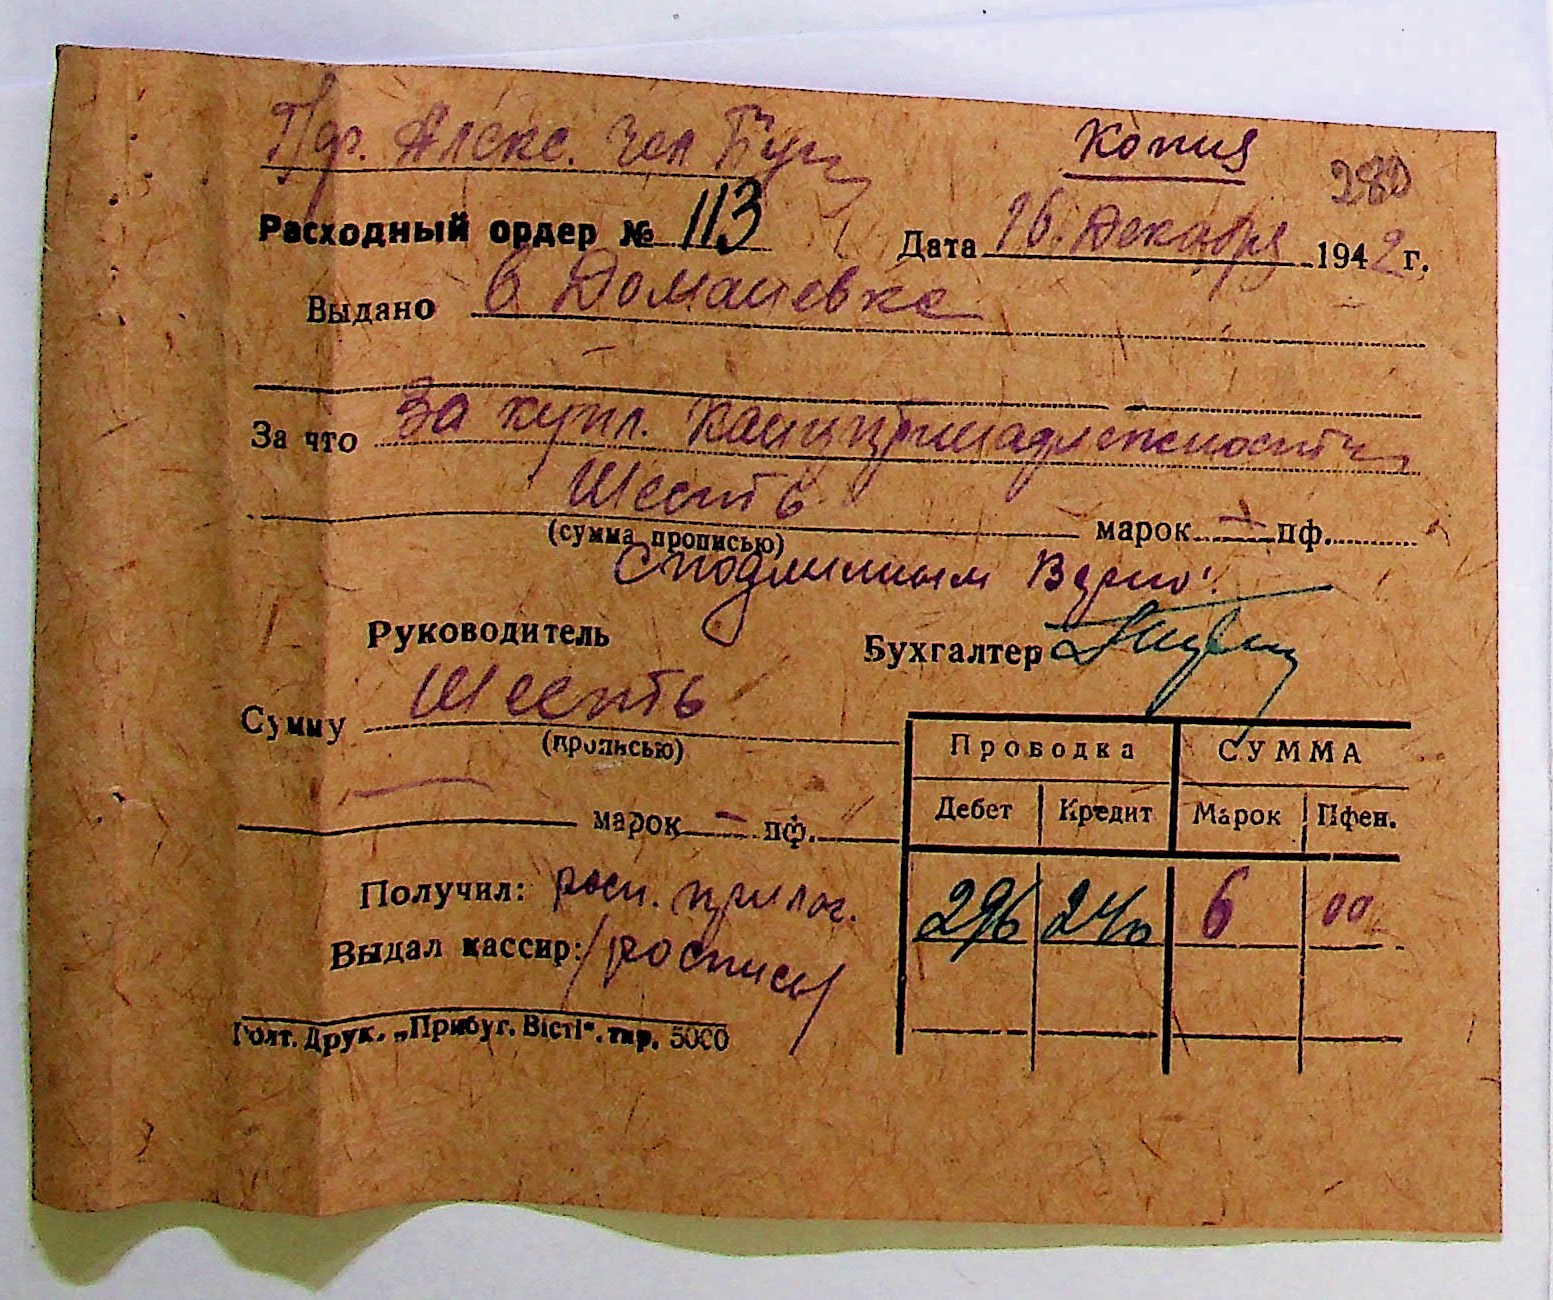 Пдр. Алекс.
Копия
280
Расходный ордер № 113 Дата 16. Декабря 1942 г.
Выдано в Домашевке
За что За купл. Канцпринадлежности
Шесть марок — пф.
(сумма прописью)
С подлинным Верно!
Руководитель Бухгалтер
Сумму Шесть
(прописью)
марок — пф.
Проводка СУММА
Дебет Кредит Марок Пфен.
296 240 6 00
Получил: росп. прилог.
Выдал кассир: /роспись/
Голт. Друк. „Прибуг. Вісті“. тир. 5000